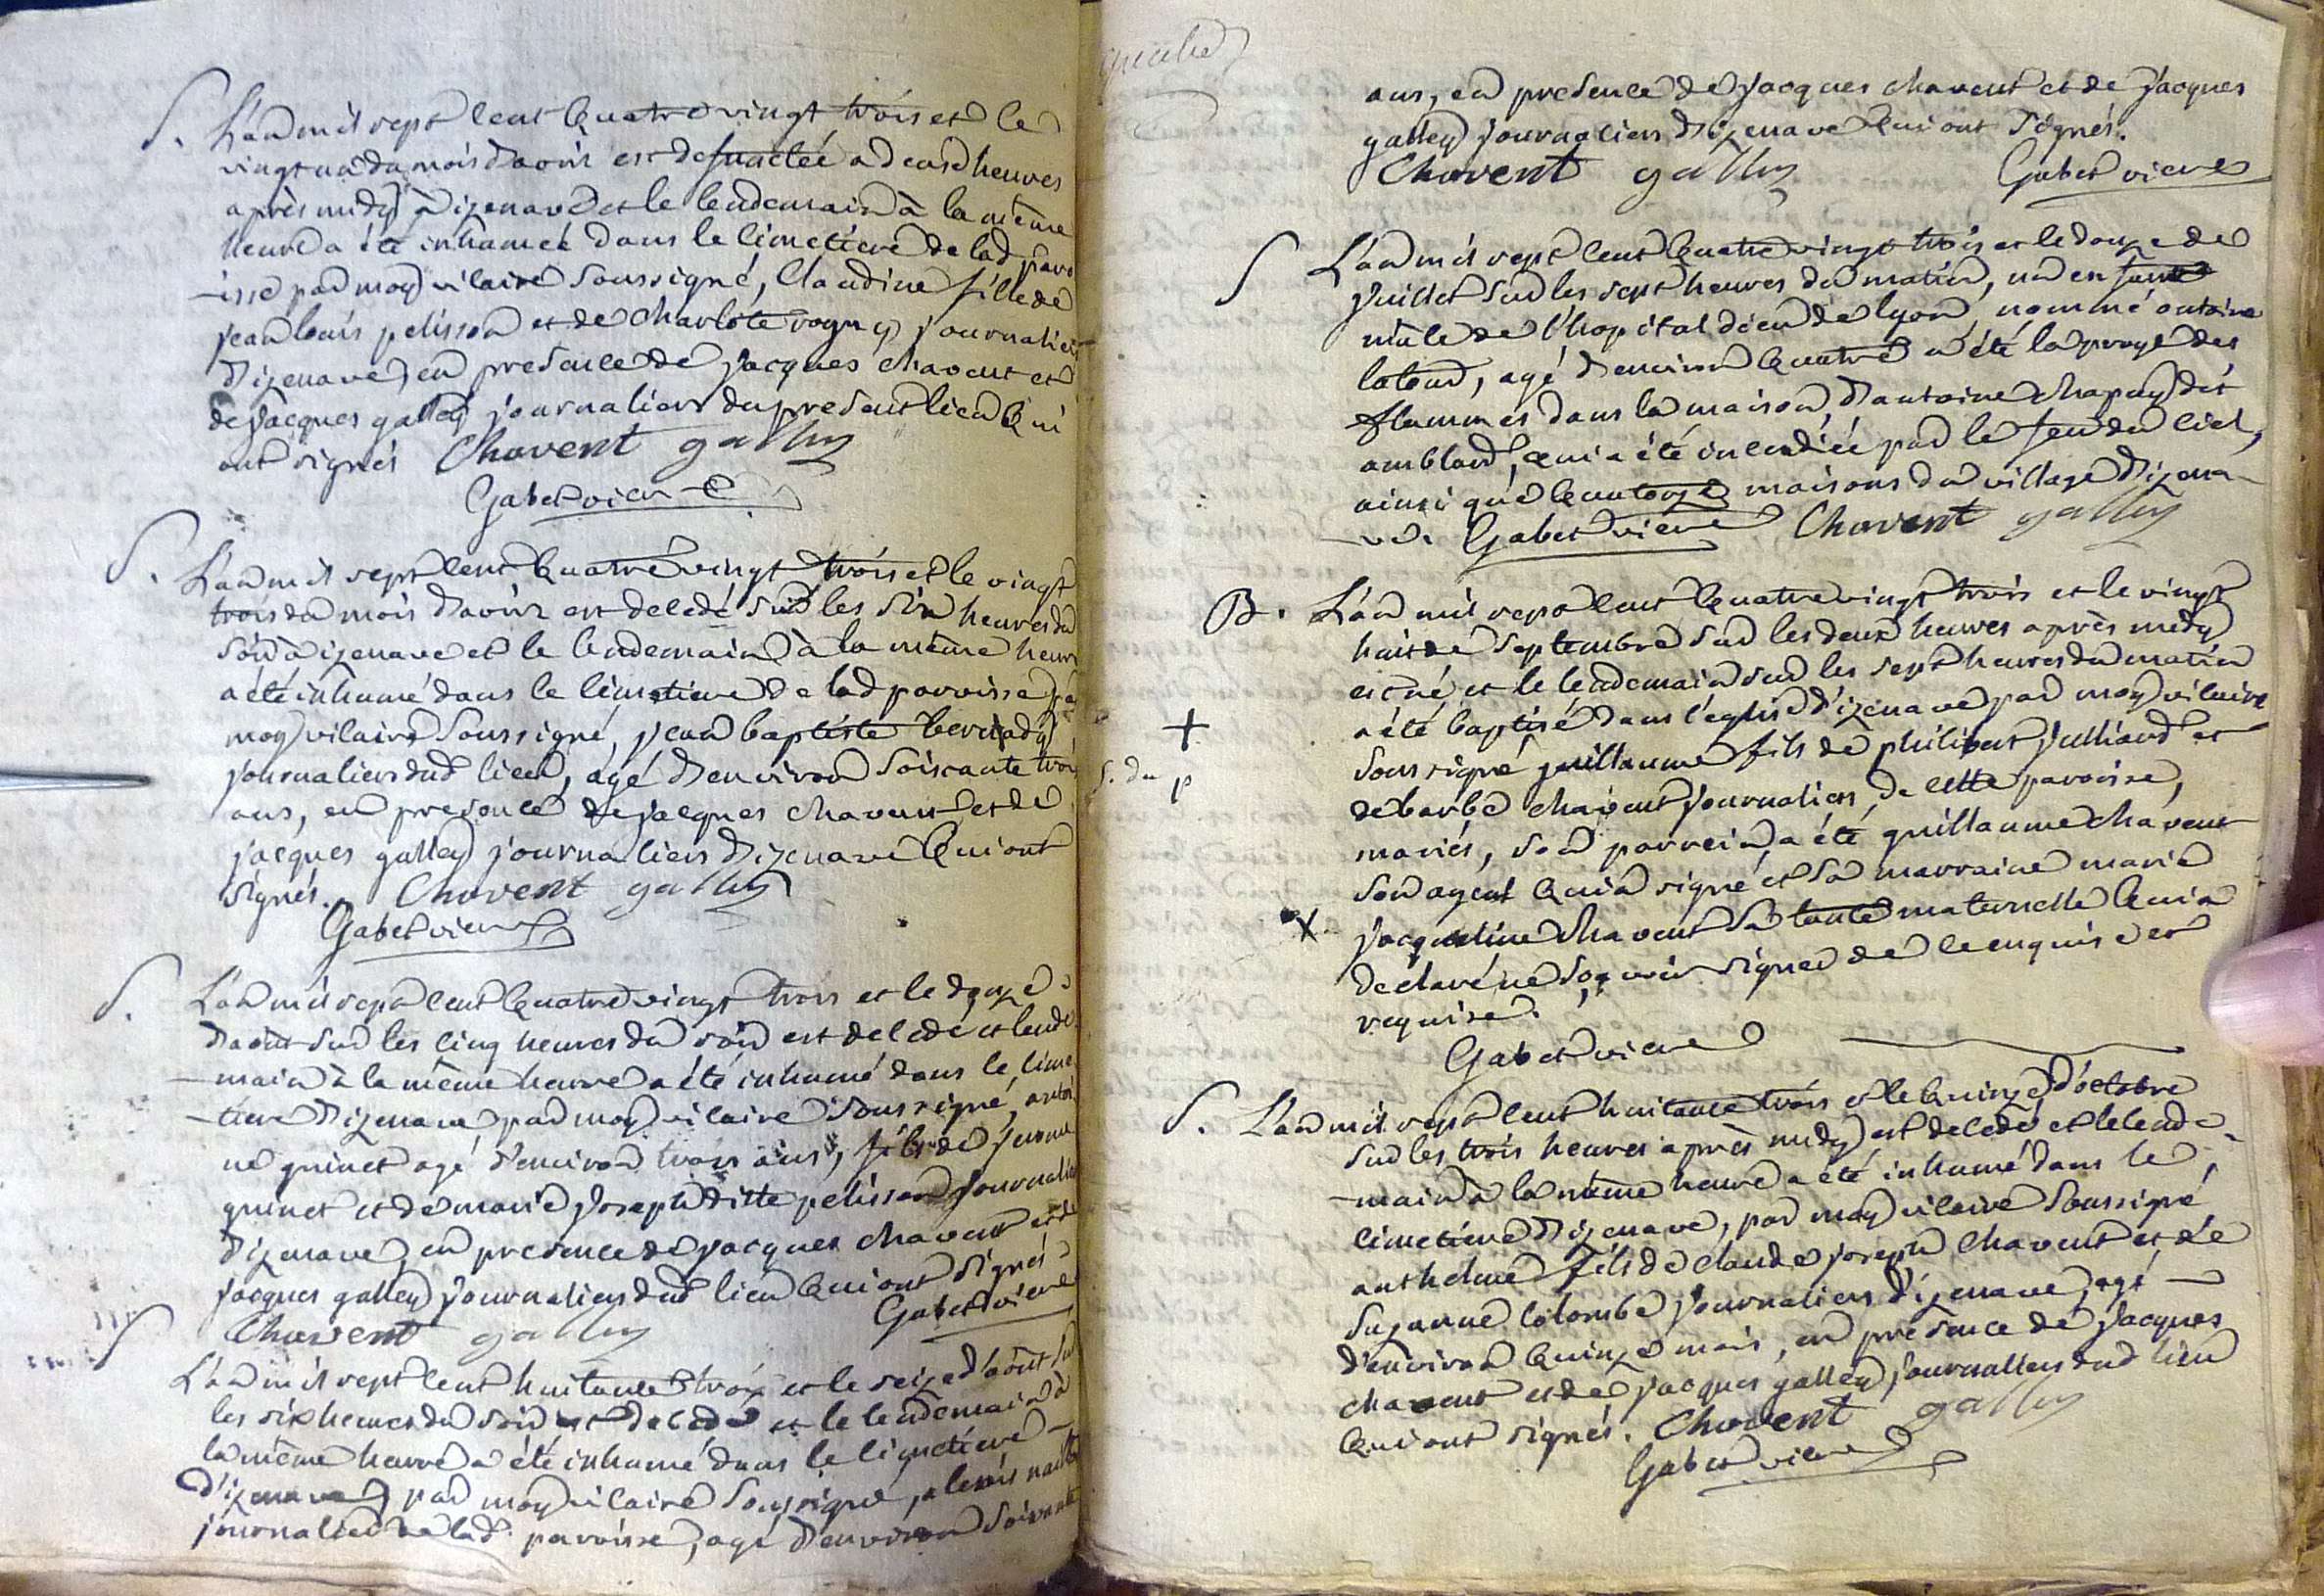 S. L'an mil sept cent quatre vingt trois et le
vingt un du mois d'avril est defunctée a deux heures
après midy à izenave et le lendemain à la même
heure a été inhumée dans le cimetiere de lad paro
-isse par moy vicaire soussigné, Claudine fille de
jean louis pelisson et de charlote rogny journaliers
d'izenave, en presence de jacques chavent et
de jacques galley journaliers du present lieu qui
ont signés Chavent galley
Gabet vicre
S. L'an mil sept cent quatre vingt trois et le vingt
trois du mois d'avril est decedé sur les six heures du
soir à izenave et le lendemain à la même heure
a été inhumé dans le cimetiere de lad parroisse par
moy vicaire soussigné, jean baptiste
journalier dud lieu, agé d'environ soixante trois
ans, en presence de jacques chavent et de
jacques galley journaliers d'izenave qui ont
signés. Chavent galley
Gabet vicre
S. L'an mil sept cent quatre vingt trois et le douze
d'août sur les cinq heures du soir est decedé et lende
-main à la même heure a été inhumé dans le cime
-tiere d'izenave par moy vicaire soussigné, antoi
ne guinet agé d'environ trois ans, fils de
guinet et de marie joseph ditte pelisson journaliers
d'izenave, en presence de jacques chavent et de
jacques galley journaliers dud lieu qui ont signés
Chavent galley Gabet vicre
S L'an mil sept cent huitante trois et le seize d'août sur
les six heures du soir est decedé et le lendemain à
la même heure a été inhumé dans le cimetiere
d'izenave, par moy vicaire soussigné, alexis
journalier de lad. paroisse, agé d'environ soixante
ans, en presence de jacques chavent et de jacques
galley journaliers d'izenave qui ont signés.
Chavent galley Gabet vicre
S L'an mil sept cent quatre vingt trois et le douze de
juillet sur les sept heures du matin, un enfant
mâle de l'hopital dieu de lyon, nommé antoine
latour, agé d'environ quatre a été la proye des
flammes dans la maison d'antoine chapuy dit
amblard, qui a été incendiée par le feu du ciel,
ainsi que quatorze maisons du village d'izena-
-ve. Gabet vicre Chavent galley
B. L'an mil sept cent quatre vingt trois et le vingt
huit de septembre sur les deux heures après midy
est né et le lendemain sur les sept heures du matin
a été baptisé dans l'eglise d'izenave par moy vicaire
soussigné guillaume fils de philibert julliard et
+
S. du
p
de barbe chavent journaliers de cette paroisse,
mariés, son parrein a été guillaume chavent
son ayeul qui a signé et sa marraine marie
X jacqueline chavent sa tante maternelle qui a
declaré ne sçavoir signer de ce enquise et
requise.
Gabet vicre
S. L'an mil sept cent huitante trois et le quinze d'octobre
sur les trois heures après midy est decedé et le lende-
-main à la même heure a été inhumé dans le
cimetiere d'izenave, par moy vicaire soussigné
anthelme fils de claude joseph chavent et de
suzanne colombe journaliers d'izenave, agé
d'environ quinze mois, en presence de jacques
chavent et de jacques galley journaliers dud lieu
qui ont signés. Chavent galley
Gabet vicre